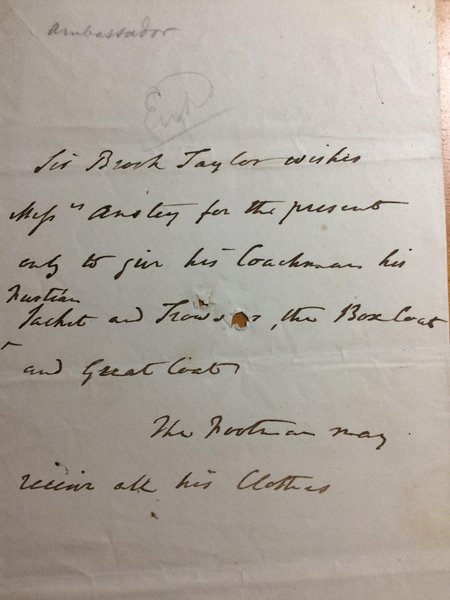 Ambassador
Sir Brook Taylor wishes
Mess rs Anstey for the present
only to give his Coachman his
Fustian
Jacket and Trowsers, the Box Coat
and Great Coat
The Footman may
receive all his Clothes